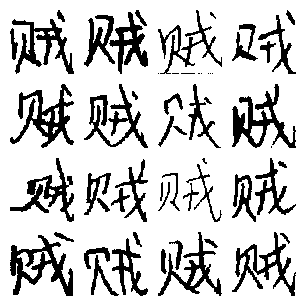 贼贼贼贼
贼贼贼贼
贼贼贼贼
贼贼贼贼